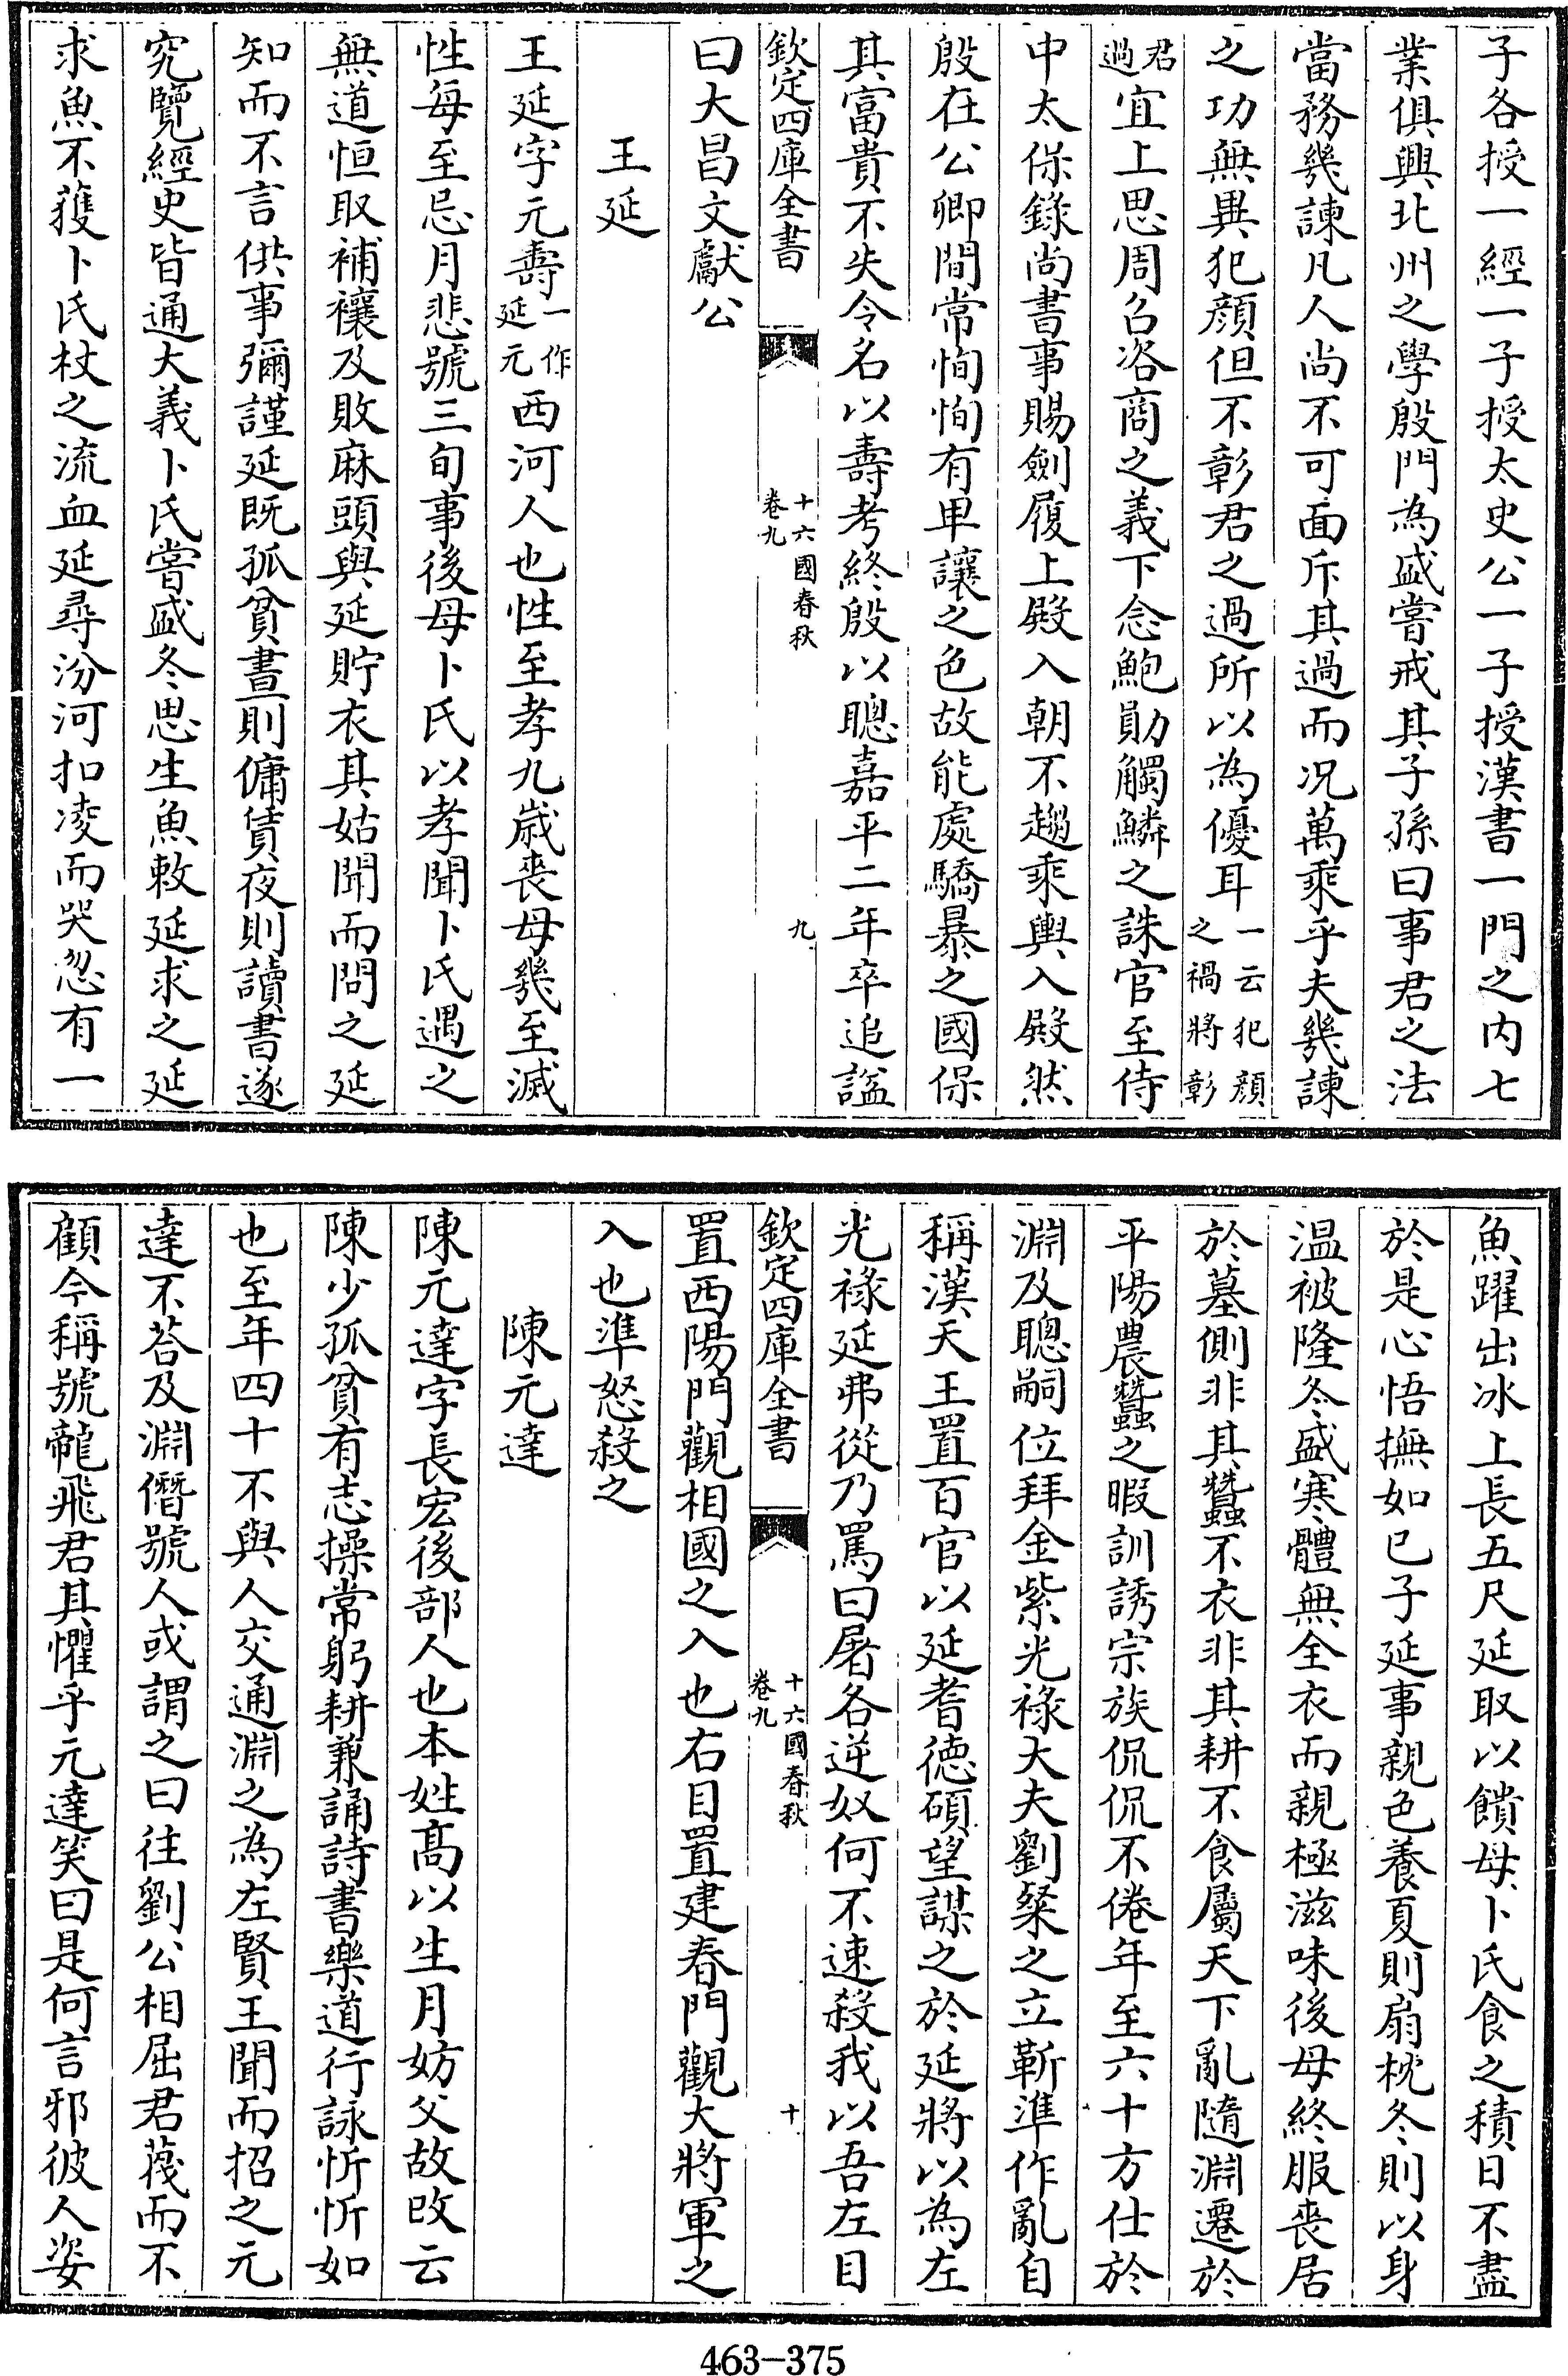 子各授一經一子授太史公一子授漢書一門之内七
業俱興北州之學殷門為盛嘗戒其子孫曰事君之法
當務幾諫凡人尚不可面斥其過而况萬乘乎夫幾諫
之功無異犯顔但不彰君之過所以為優耳一云犯顔之禍將彰
君過宜上思周召咨商之義下念鮑勛觸鱗之誅官至侍
中太保錄尚書事賜劍履上殿入朝不趨乘輿入殿然
殷在公卿間常恂恂有卑讓之色故能處驕暴之國保
其富貴不失令名以壽考終殷以聰嘉平二年卒追謚
欽定四庫全書 十六國春秋 卷九 九
曰大昌文獻公
王延
王延字元壽一作延元西河人也性至孝九歲喪母幾至滅
性每至忌月悲號三旬事後母卜氏以孝聞卜氏遇之
無道恒取補穰及敗麻頭與延貯衣其姑聞而問之延
知而不言供事彌謹延既孤貧晝則傭賃夜則讀書遂
究覽經史皆通大義卜氏嘗盛冬思生魚敕延求之延
求魚不獲卜氏杖之流血延尋汾河扣凌而哭忽有一
魚躍出冰上長五尺延取以饋母卜氏食之積日不盡
於是心悟撫如已子延事親色養夏則扇枕冬則以身
温被隆冬盛寒體無全衣而親極滋味後母終服喪居
於墓側非其蠶不衣非其耕不食屬天下亂隨淵遷於
平陽農蠶之暇訓誘宗族侃侃不倦年至六十方仕於
淵及聰嗣位拜金紫光祿大夫劉粲之立靳準作亂自
稱漢天王置百官以延耆德碩望謀之於延將以為左
光祿延弗從乃罵曰屠各逆奴何不速殺我以吾左目
欽定四庫全書 十六國春秋 卷九 十
置西陽門觀相國之入也右目置建春門觀大將軍之
入也準怒殺之
陳元達
陳元達字長宏後部人也本姓髙以生月妨父故改云
陳少孤貧有志操常躬耕兼誦詩書樂道行詠忻忻如
也至年四十不與人交通淵之為左賢王聞而招之元
達不荅及淵僭號人或謂之曰往劉公相屈君蔑而不
顧今稱號龍飛君其懼乎元達笑曰是何言邪彼人姿
463-375